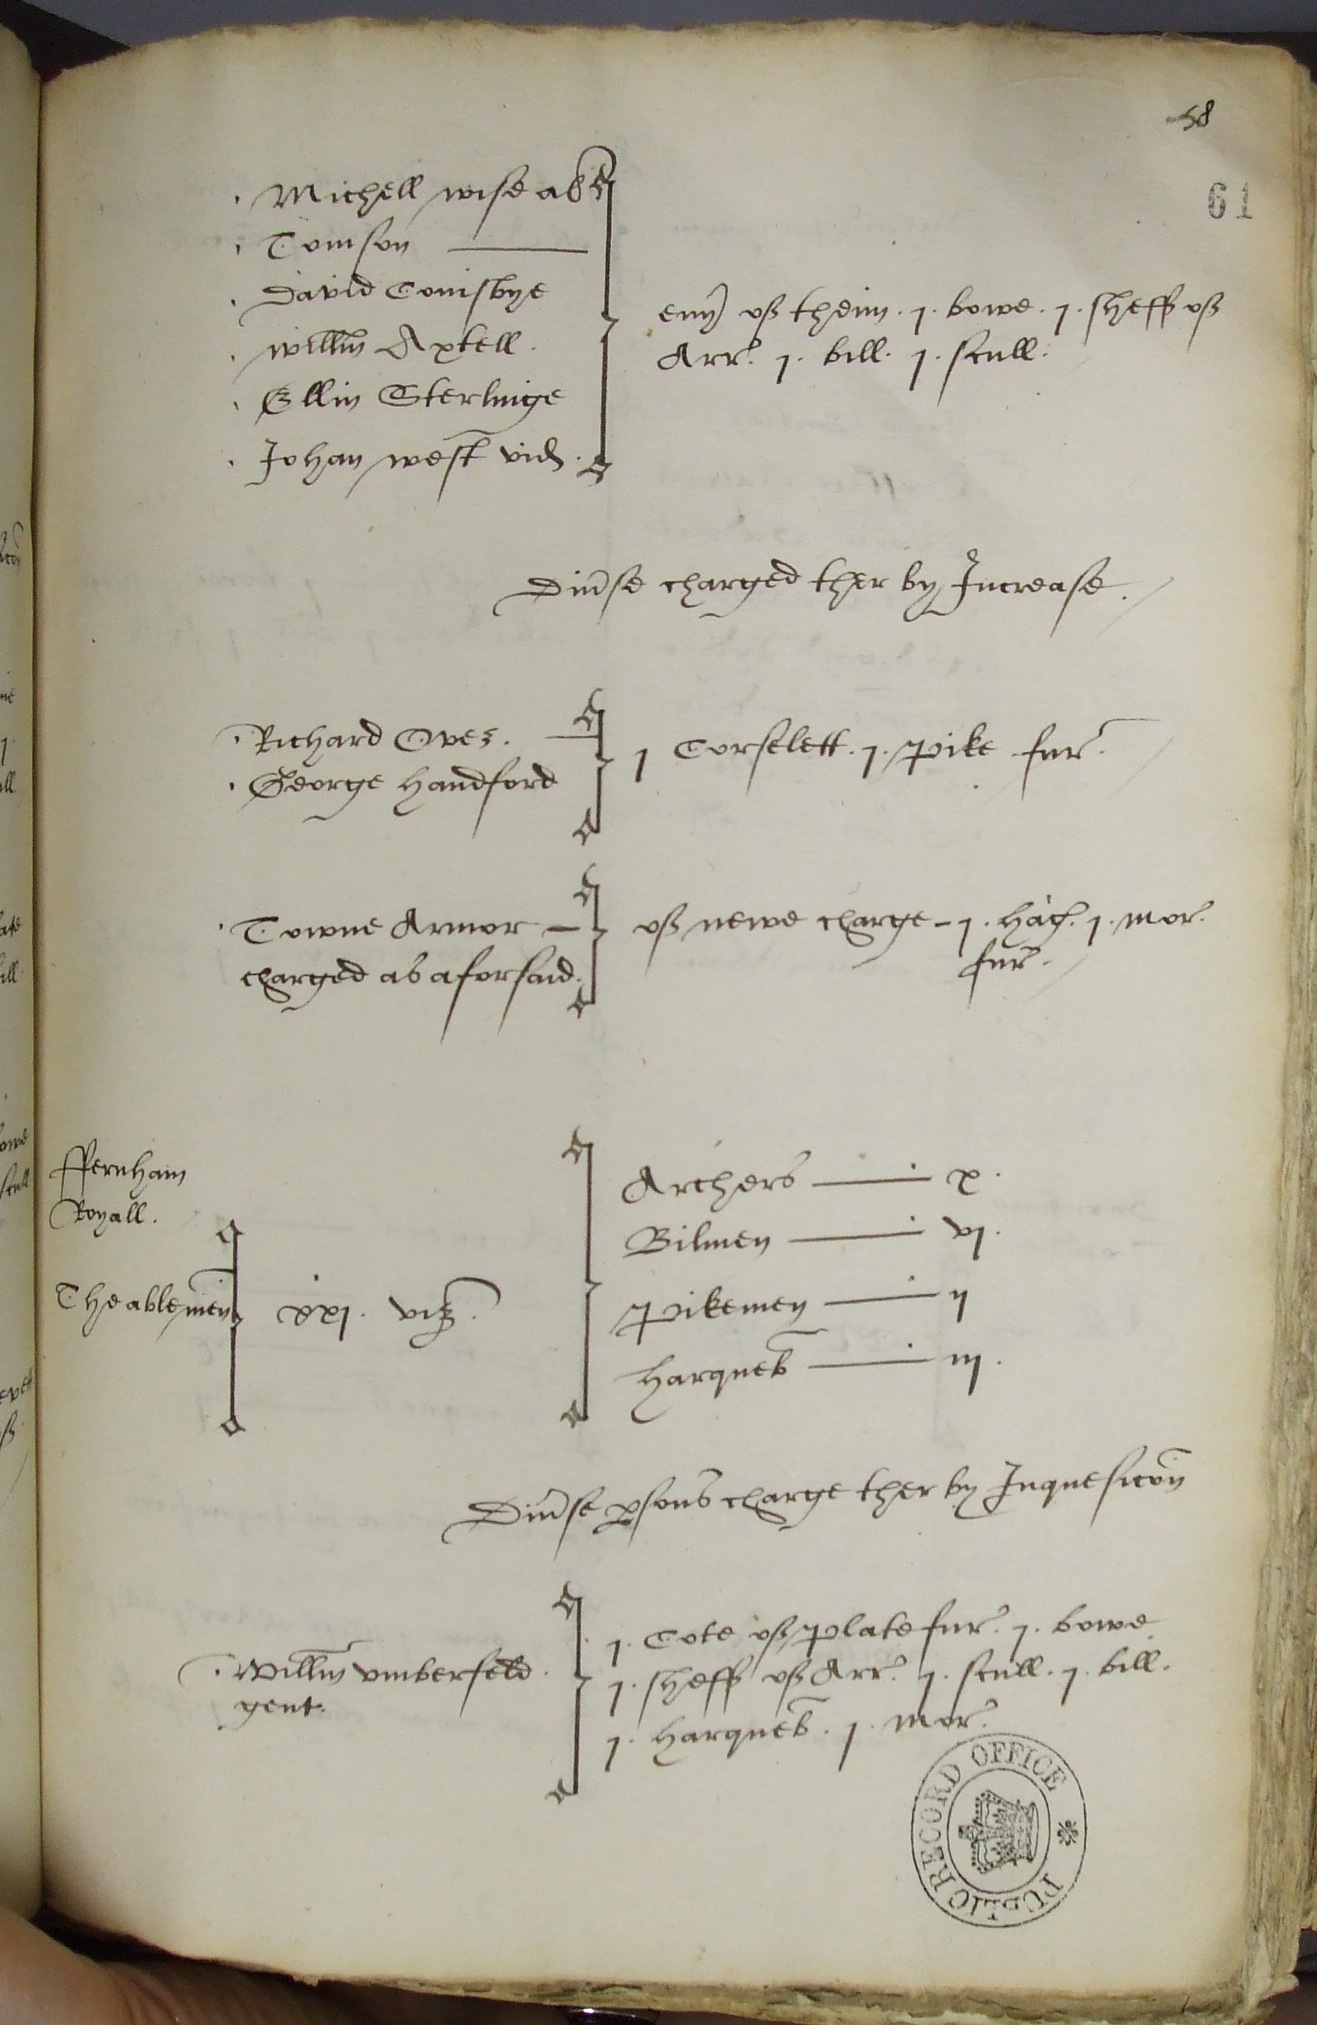 58
61
Michell wise als
Tomson
David Conisbye
willm Axtell
Ellin Sterlinge
Johan west vid.
euy of theim . j . bowe . j . sheff of
Arr. j . bill . j . scull .
Diuse charged ther by Increase .
Richard Ovez .
George Handford
j Corselett . j . pike fur .
Towne Armor
charged as aforsaid .
of newe charge - j . haq . j . mor .
fur .
ffernham
Royall .
The able men
xxj . viz .
Archers x .
Bilmen vj .
pikemen ij
harqueb iij .
Diuse psons charge ther by Inquesicon
Willm vmberfeld .
gent .
j . Cote of plate fur . j . bowe
j . sheff of Arr . j . scull . j . bill .
j . harqueb . j . mor .
PUBLIC RECORD OFFICE